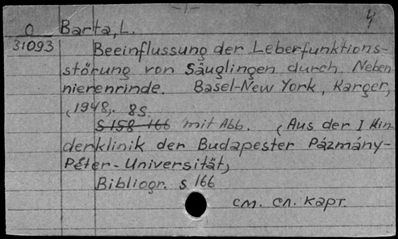 4
O Barta, L.
31093 Beeinflussung der Leberfunktions-
störung von Säuglingen durch Neben
nierenrinde. Basel-New York, Karger,
(1948, 8S
S 158-166 mit Abb. (Aus der I Kin
derklinik der Budapester Pázmány-
Péter-Universität)
Bibliogr. s 166
см. сл. карт.